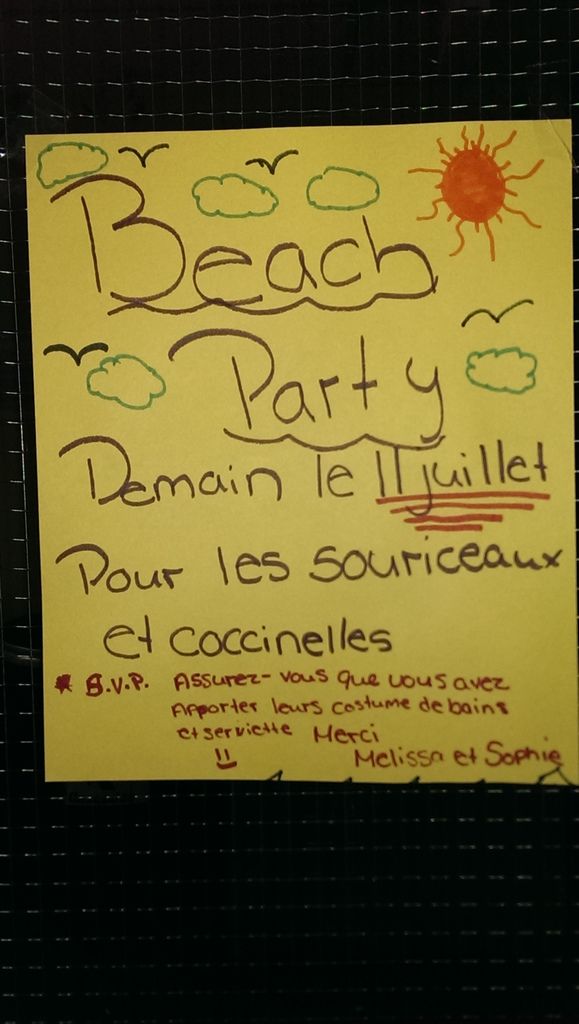 Beach
Party
Demain le 11 juillet
Pour les souriceaux
et coccinelles
* S.V.P. Assurez-vous que vous avez
Apporter leurs costume de bains
et serviette Merci
Melissa et Sophie